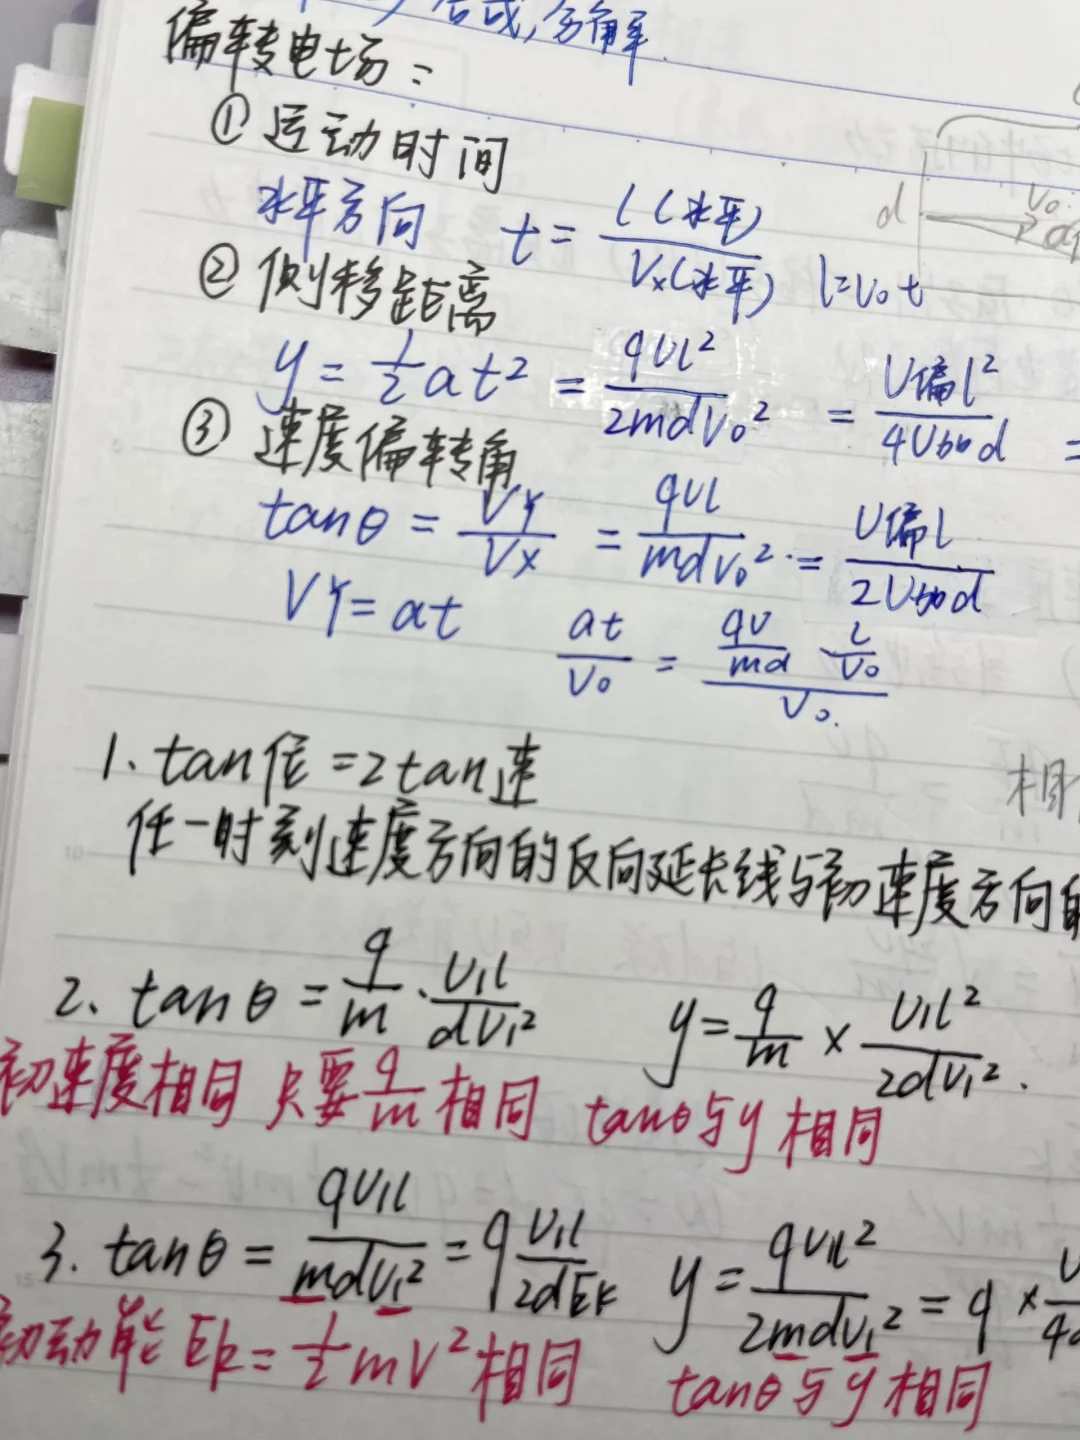 合成,分解
偏转电场:
① 运动时间
水平方向 t = l(水平)/Vx(水平) l=v₀t
② 侧移距离
y = 1/2 at² = qUl²/2mdv₀² = U偏l²/4U加d =
③ 速度偏转角
tanθ = Vy/Vx = qUl/mdv₀² = U偏l/2U加d
Vy = at at/v₀ = (qU/md · l/v₀)/v₀
d v₀
1、tan位 = 2tan速
相
任一时刻速度方向的反向延长线与初速度方向的
2、tanθ = q/m · U₁l/dv₁² y = q/m × U₁l²/2dv₁².
初速度相同 只要q/m相同 tanθ与y相同
3. tanθ = qU₁l/mdv₁² = q U₁l/2dEk y = qU₁l²/2mdv₁² = q ×
初动能Ek = 1/2 mV²相同 tanθ与y相同